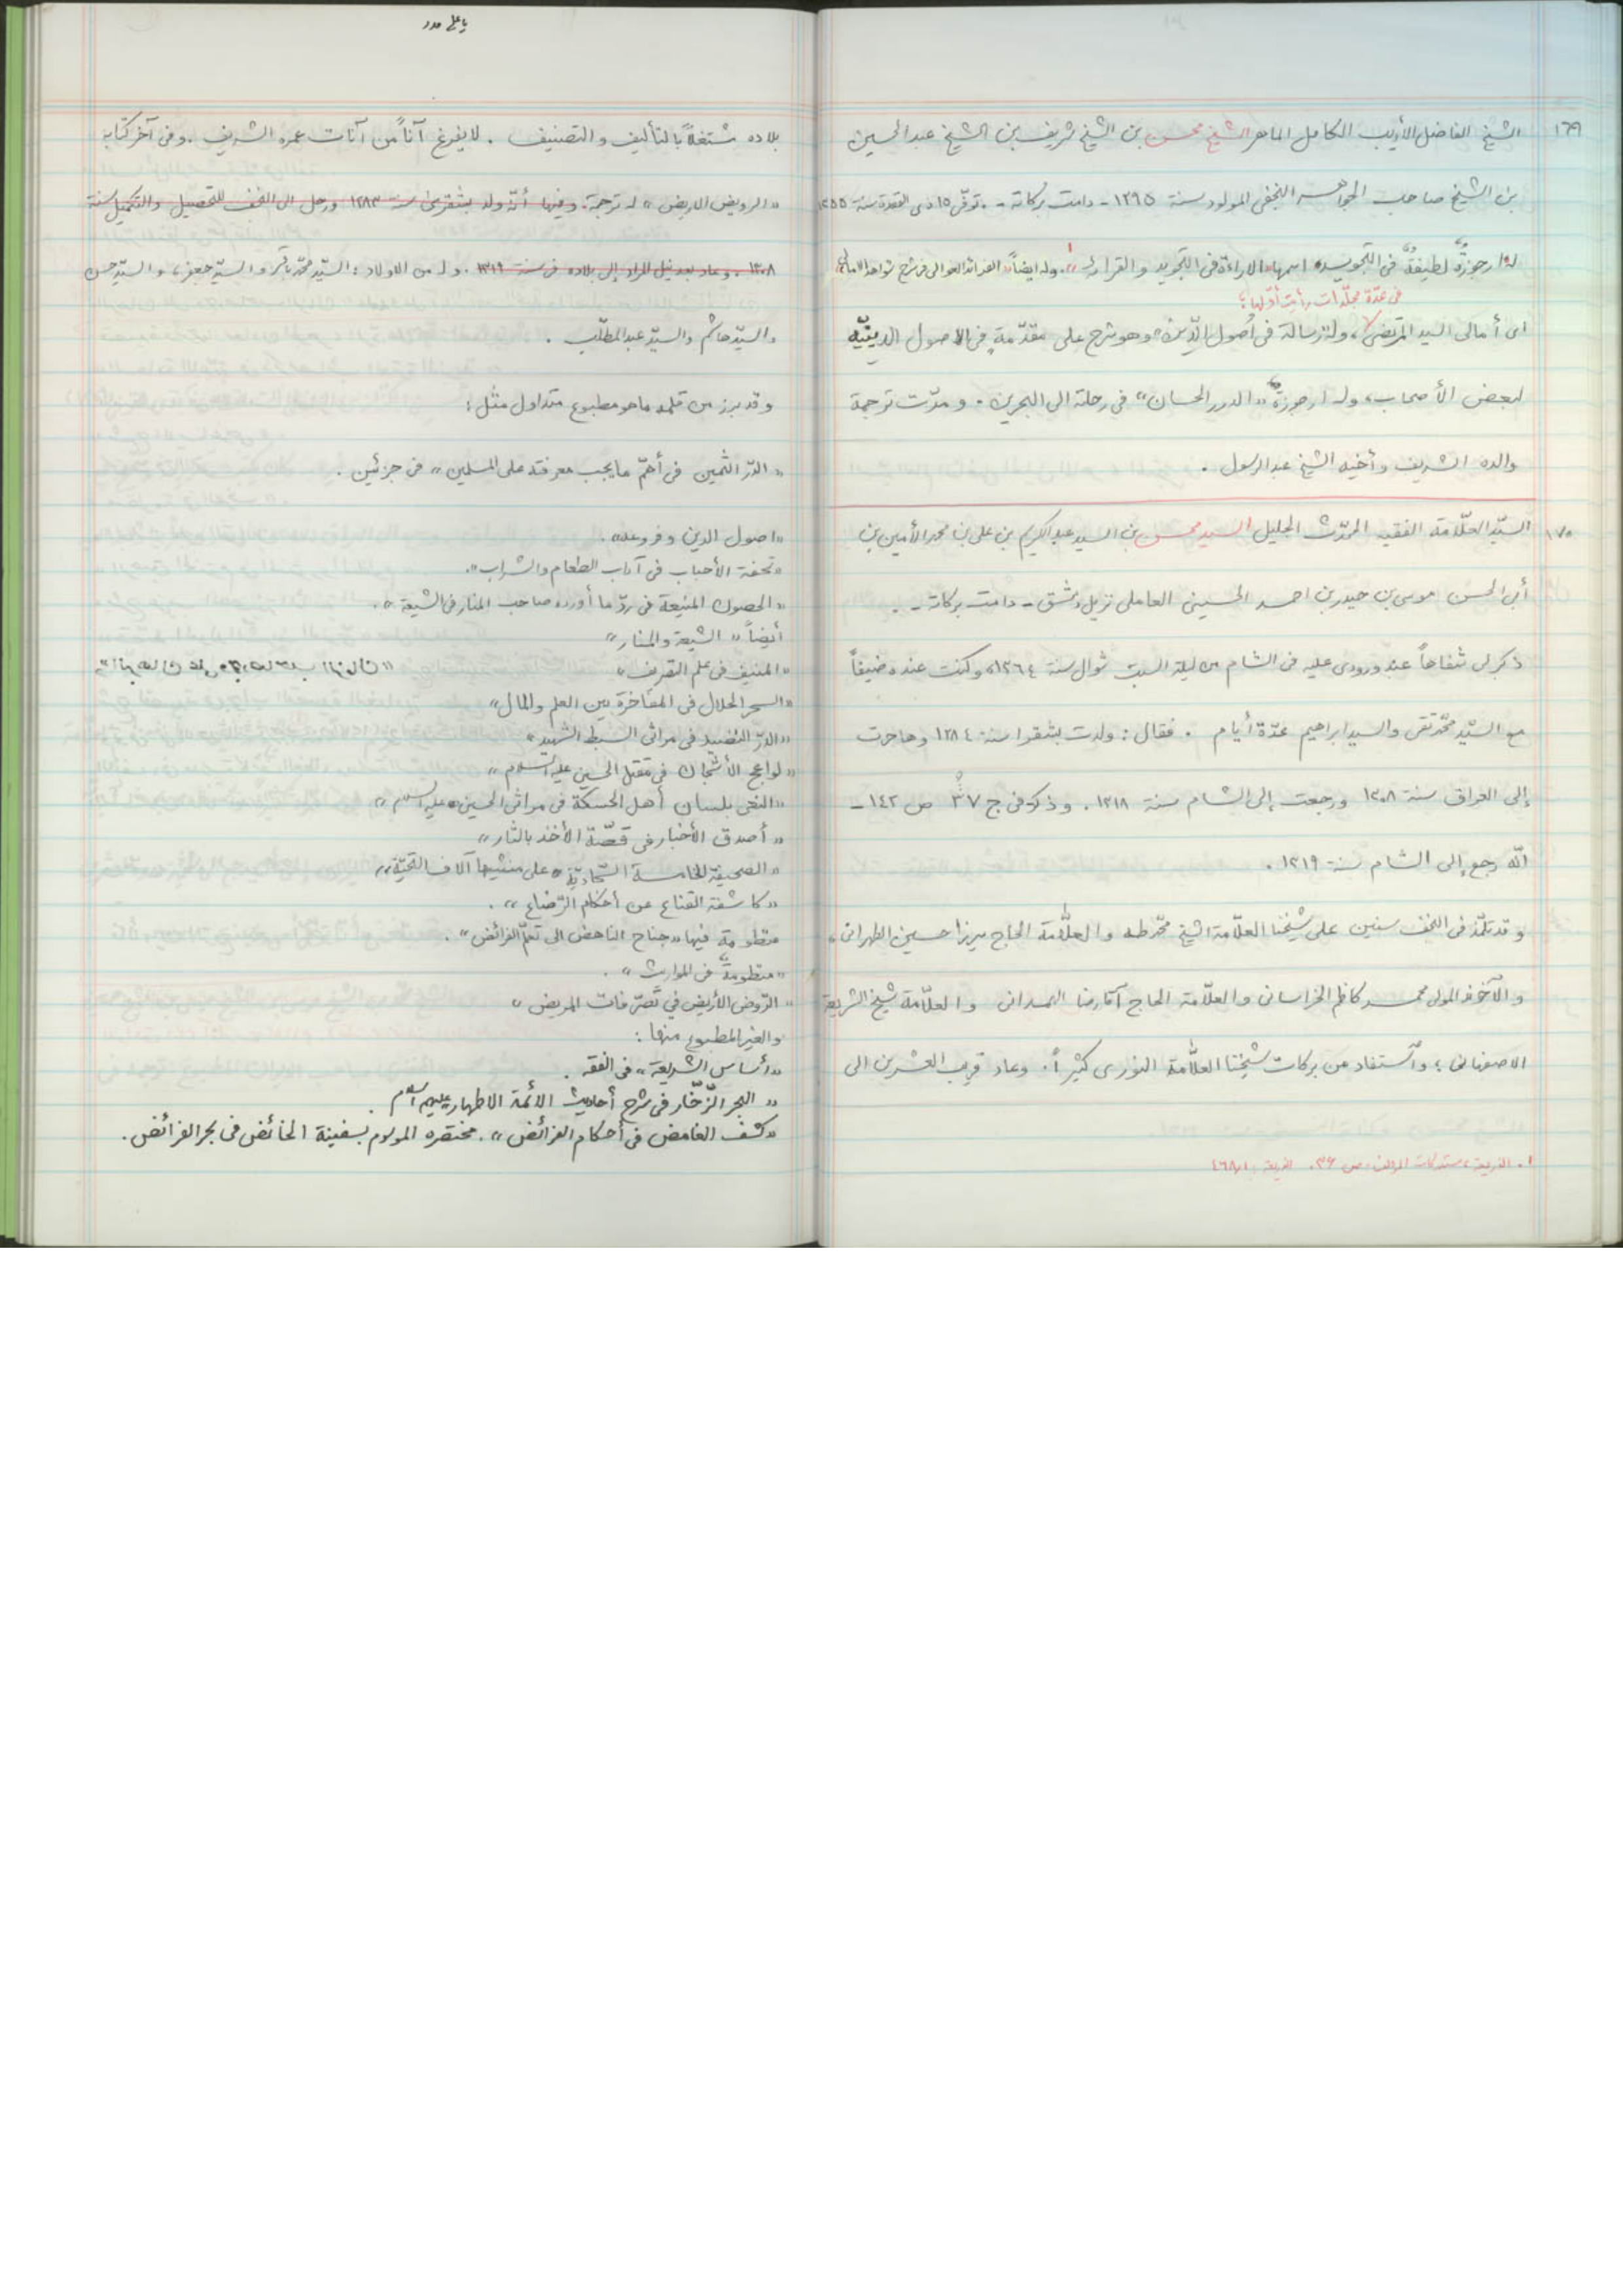 ١٦٩ الشيخ الفاضل الأديب الكامل الماهر الشيخ محسن بن الشيخ شريف بن الشيخ عبد الحسين
بن الشيخ صاحب الجواهر النجفي المولود سنة ١٢٩٥ - دامت بركاته - . توفّى ١٥ ذى القعدة سنة ١٣٥٥
له ارجوزةٌ لطيفةٌ فى التجويد اسمها «الاراءة فى التجويد والقراءة»١. وله ايضاً «الفرائد الغوالى فى شرح شواهد الامالى»
فى عدّة مجلّدات رأيت أوّلها؛
اى أمالى السيد المرتضى، وله رسالة فى اُصول الدّين، وهو شرح على مقدّمةٍ فى الاصول الدينيّة
لبعض الأصحاب، وله ارجوزة «الدرر الحسان» فى رحلته الى البحرين. ومرّت ترجمة
والده الشريف وأخيه الشيخ عبد الرسول .
١٧٠ السيّد العلّامة الفقيه المحدّث الجليل السيد محسن بن السيد عبد الكريم بن على بن محمد الأمين بن
أبى الحسن موسى بن حيدر بن احمد الحسينى العاملى نزيل دمشق - دامت بركاته - .
ذكر لى شفاهاً عند ورودى عليه فى الشام من ليلة السبت شوال سنة ١٣٦٤، وكنت عنده ضيفاً
مع السيّد محمّد تقى والسيد ابراهيم عدّة أيام . فقال: ولدت بشقرا سنة ١٢٨٤ وهاجرت
إلى العراق سنة ١٣٠٨ ورجعت إلى الشام سنة ١٣١٨. وذكر فى ج ٣٧ ص ١٤٢ -
انّه رجع إلى الشام سنة ١٣١٩ .
وقد تلمّذ فى النجف سنين على شيخنا العلّامة الشيخ محمّد طه والعلّامة الحاج ميرزا حسين الطهرانى،
والآخوند المولى محمد كاظم الخراسانى والعلّامة الحاج آقا رضا الهمدانى والعلّامة شيخ الشريعة
الاصفهانى؛ واستفاد من بركات شيخنا العلّامة النورى كثيراً. وعاد قريب العشرين الى
١. الذريعة، مستدركات المؤلف، ص ٣٦. الذريعة
يا على مدد
بلاده مشتغلاً بالتأليف والتصنيف . لا يفرغ آناً من آنات عمره الشريف. وفى آخر كتابه
«الروض الاريض» له ترجمة. وفيها أنّه ولد بشقرى سنة ١٢٨٣ ورحل الى النجف للتحصيل والتكميل سنة
١٣٠٨. وعاد بعد نيل المراد إلى بلاده فى سنة ١٣١٩. وله من الاولاد: السيّد محمّد باقر والسيّد جعفر، والسيّد حسن
والسيّد هاشم والسيّد عبد المطّلب .
وقد برز من قلمه ما هو مطبوع متداول مثل:
«الدّر الثمين فى أهمّ ما يجب معرفته على المسلمين» فى جزئين .
«اصول الدين وفروعه» .
«تحفة الأحباب فى آداب الطعام والشراب».
«الحصون المنيعة فى ردّ ما أورده صاحب المنار فى الشيعة» .
أيضاً «الشيعة والمنار»
«المنيف فى علم التصريف»
«السحر الحلال فى المفاخرة بين العلم والمال»
«الدرّ النضيد فى مراثى السبط الشهيد»
«لواعج الأشجان فى مقتل الحسين عليه السلام»
«النعى بلسان أهل الحسكة فى مراثى الحسين عليه السلام»
«أصدق الأخبار فى قصّة الأخذ بالثار»
«الصحيفة الخامسة السجّاديّة على منشيها آلاف التحيّة»
«كاشفة القناع عن أحكام الرّضاع» .
منظومة فيها «جناح الناهض الى تعلّم الفرائض» .
«منظومة فى المواريث» .
«الرّوض الأريض في تصرّفات المريض»
والغير المطبوع منها:
«أساس الشريعة» فى الفقه .
«البحر الزّخّار فى شرح أحاديث الأئمة الاطهار عليهم السلام .
«كشف الغامض فى أحكام الفرائض». مختصره الموسوم بسفينة الخائض فى بحر الفرائض.